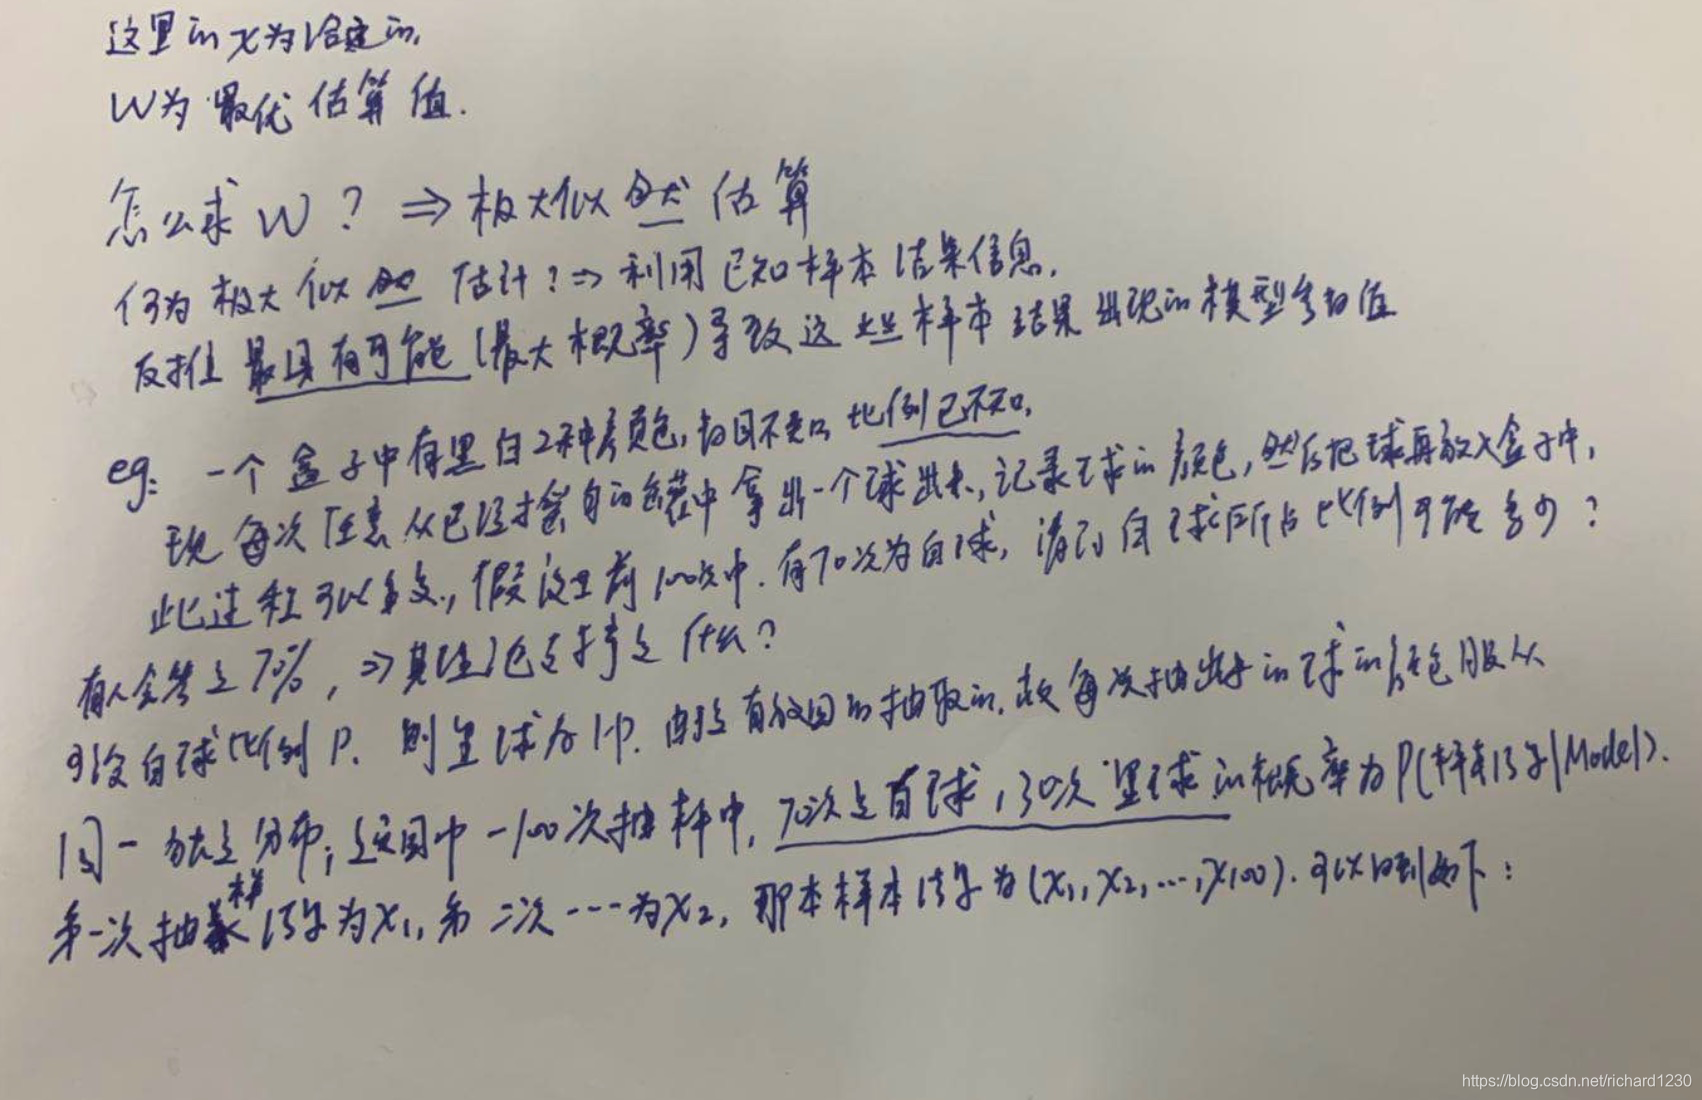 这里的x为给定的,
W为最优估算值.
怎么求W? ⇒极大似然估算
何为极大似然估计?⇒利用已知样本结果信息,
反推最具有可能(最大概率)导致这些样本结果出现的模型参数值
eg: 一个盒子中有黑白2种颜色,数目不知 比例也不知,
现每次任意从已经 中拿出一个球出来,记录球的颜色,然后把球再放入盒子中,
此过程可以重复,假设这里前100次中.有70次为白球,请问白球所占比例可能多少?
有人会答是70%,⇒其理论支持是什么?
可设白球比例P.则黑球为1-P.由于是有放回的抽取的,故每次抽出来的球的颜色服从
同一独立分布;这里 中一100次抽样中,70次是白球,30次黑球的概率为P(样本结果|Model).
第一次抽样结果为x₁,第二次---为x₂,那本样本结果为(x₁,x₂,...,x₁₀₀).可以得到如下:
https://blog.csdn.net/richard1230